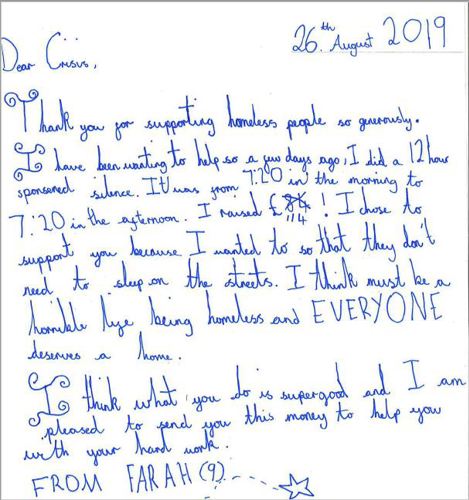 26th August 2019
Dear Crisis,
Thank you for supporting homeless people so generously.
I have been wanting to help so a few days ago, I did a 12 hour
sponsered silence. It was from 7:20 in the morning to
7:20 in the afternoon. I raised £114! I chose to
support you because I wanted to so that they don't
need to sleep on the streets. I think must be a
horrible life being homeless and EVERYONE
deserves a home.
I think what you do is supergood and I am
pleased to send you this money to help you
with your hard work.
FROM FARAH (9)